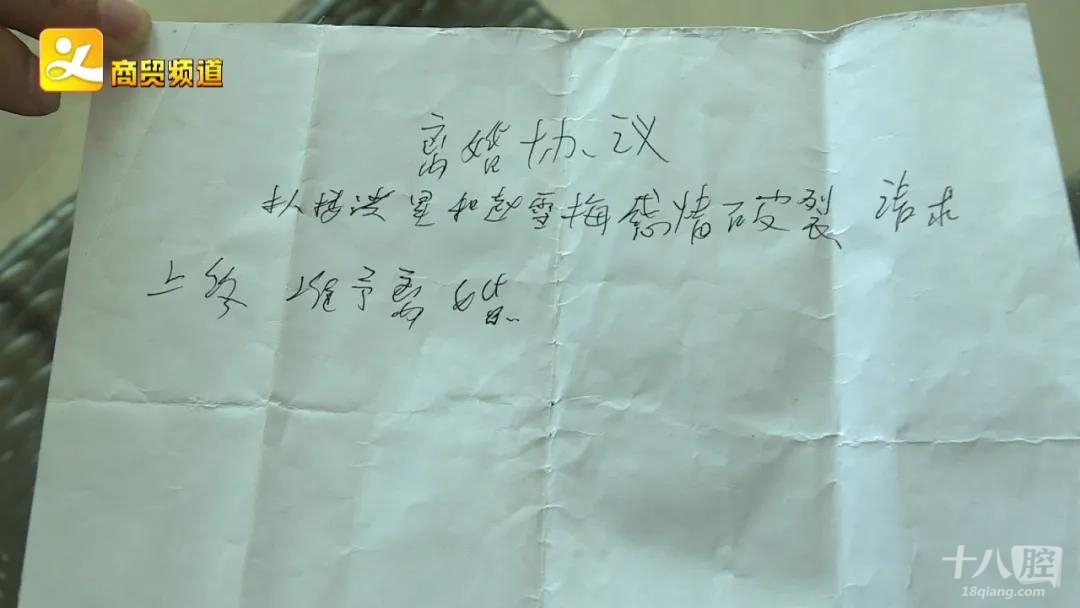 商贸频道
离婚协议
楼洪星和赵雪梅感情破裂 请求
上 准予离婚
十八腔
18qiang.com